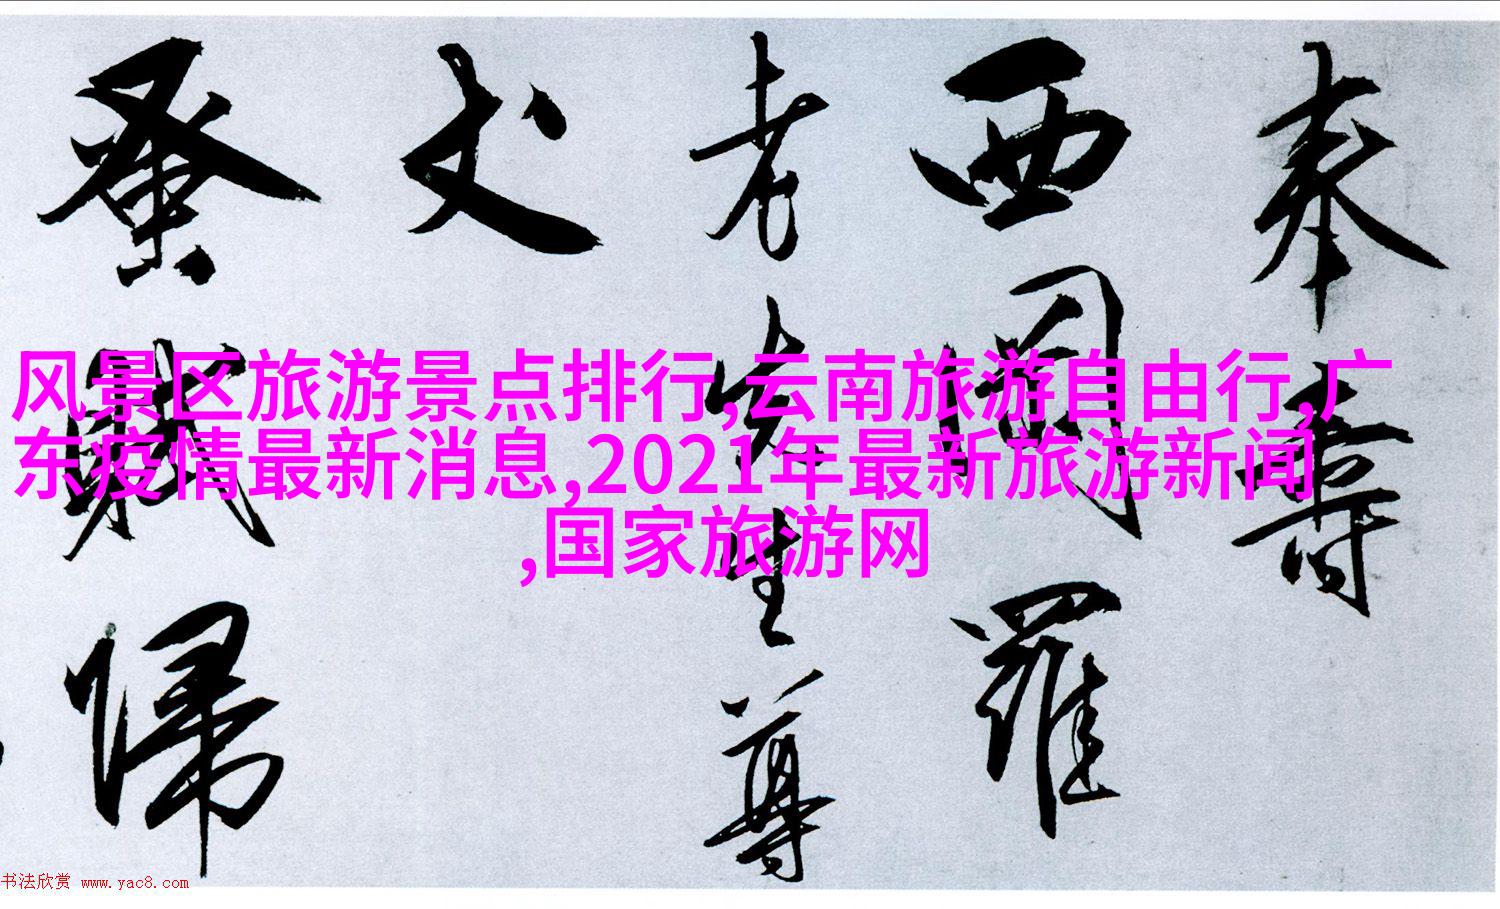 奉壽
西閣羅
老先生尊
丈
蚤賦歸
风景区旅游景点排行,云南旅游自由行,广
东疫情最新消息,2021年最新旅游新闻
,国家旅游网
书法欣赏 www.yac8.com